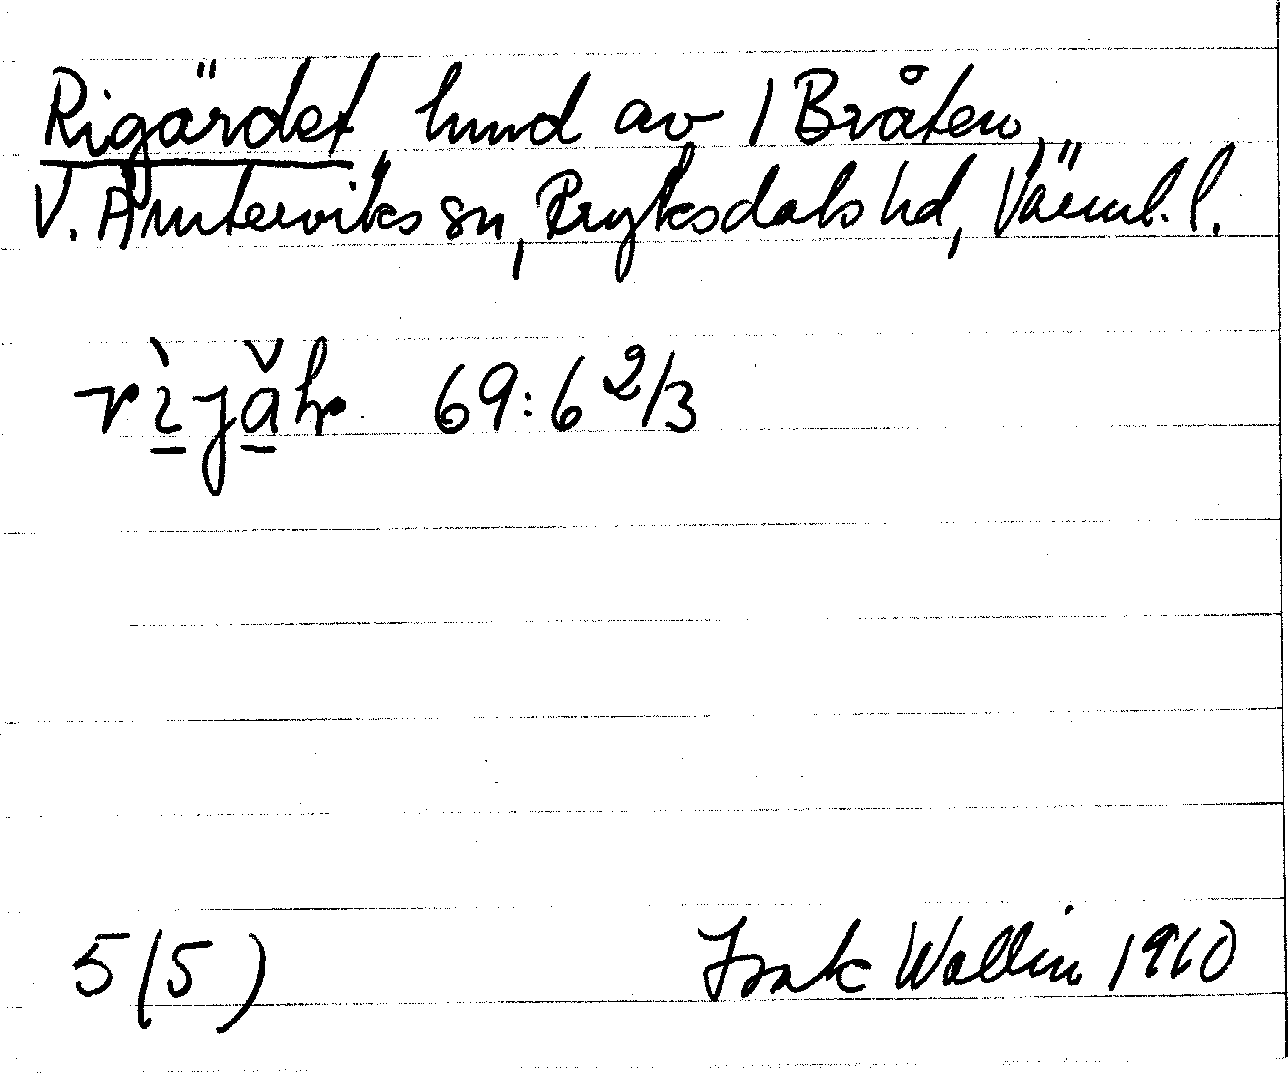 Rigärdet, hmd av 1 Bråten,
V. Ämterviks sn, Fryksdals hd, Värml. l.
69:6 2/3
5(5) Isak Wallin 1960